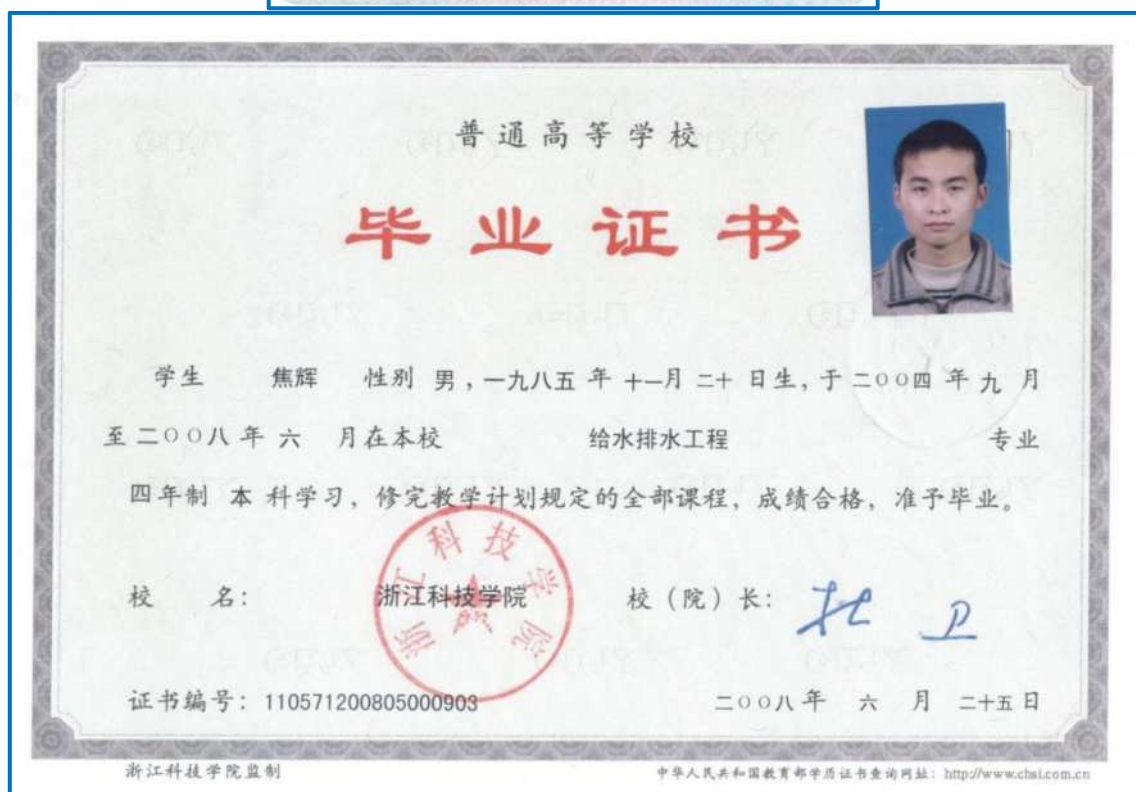 普通高等学校
毕业证书
学生 焦辉 性别 男,一九八五 年 十一月 二十 日生,于 二〇〇四 年 九 月
至 二〇〇八 年 六 月在本校 给水排水工程 专业
四年制 本 科学习,修完教学计划规定的全部课程,成绩合格,准予毕业。
浙江科技学院
校 名: 浙江科技学院 校(院)长: 杜 卫
证书编号: 110571200805000903 二〇〇八 年 六 月 二十五 日
浙江科技学院监制 中华人民共和国教育部学历证书查询网址: http://www.chsi.com.cn